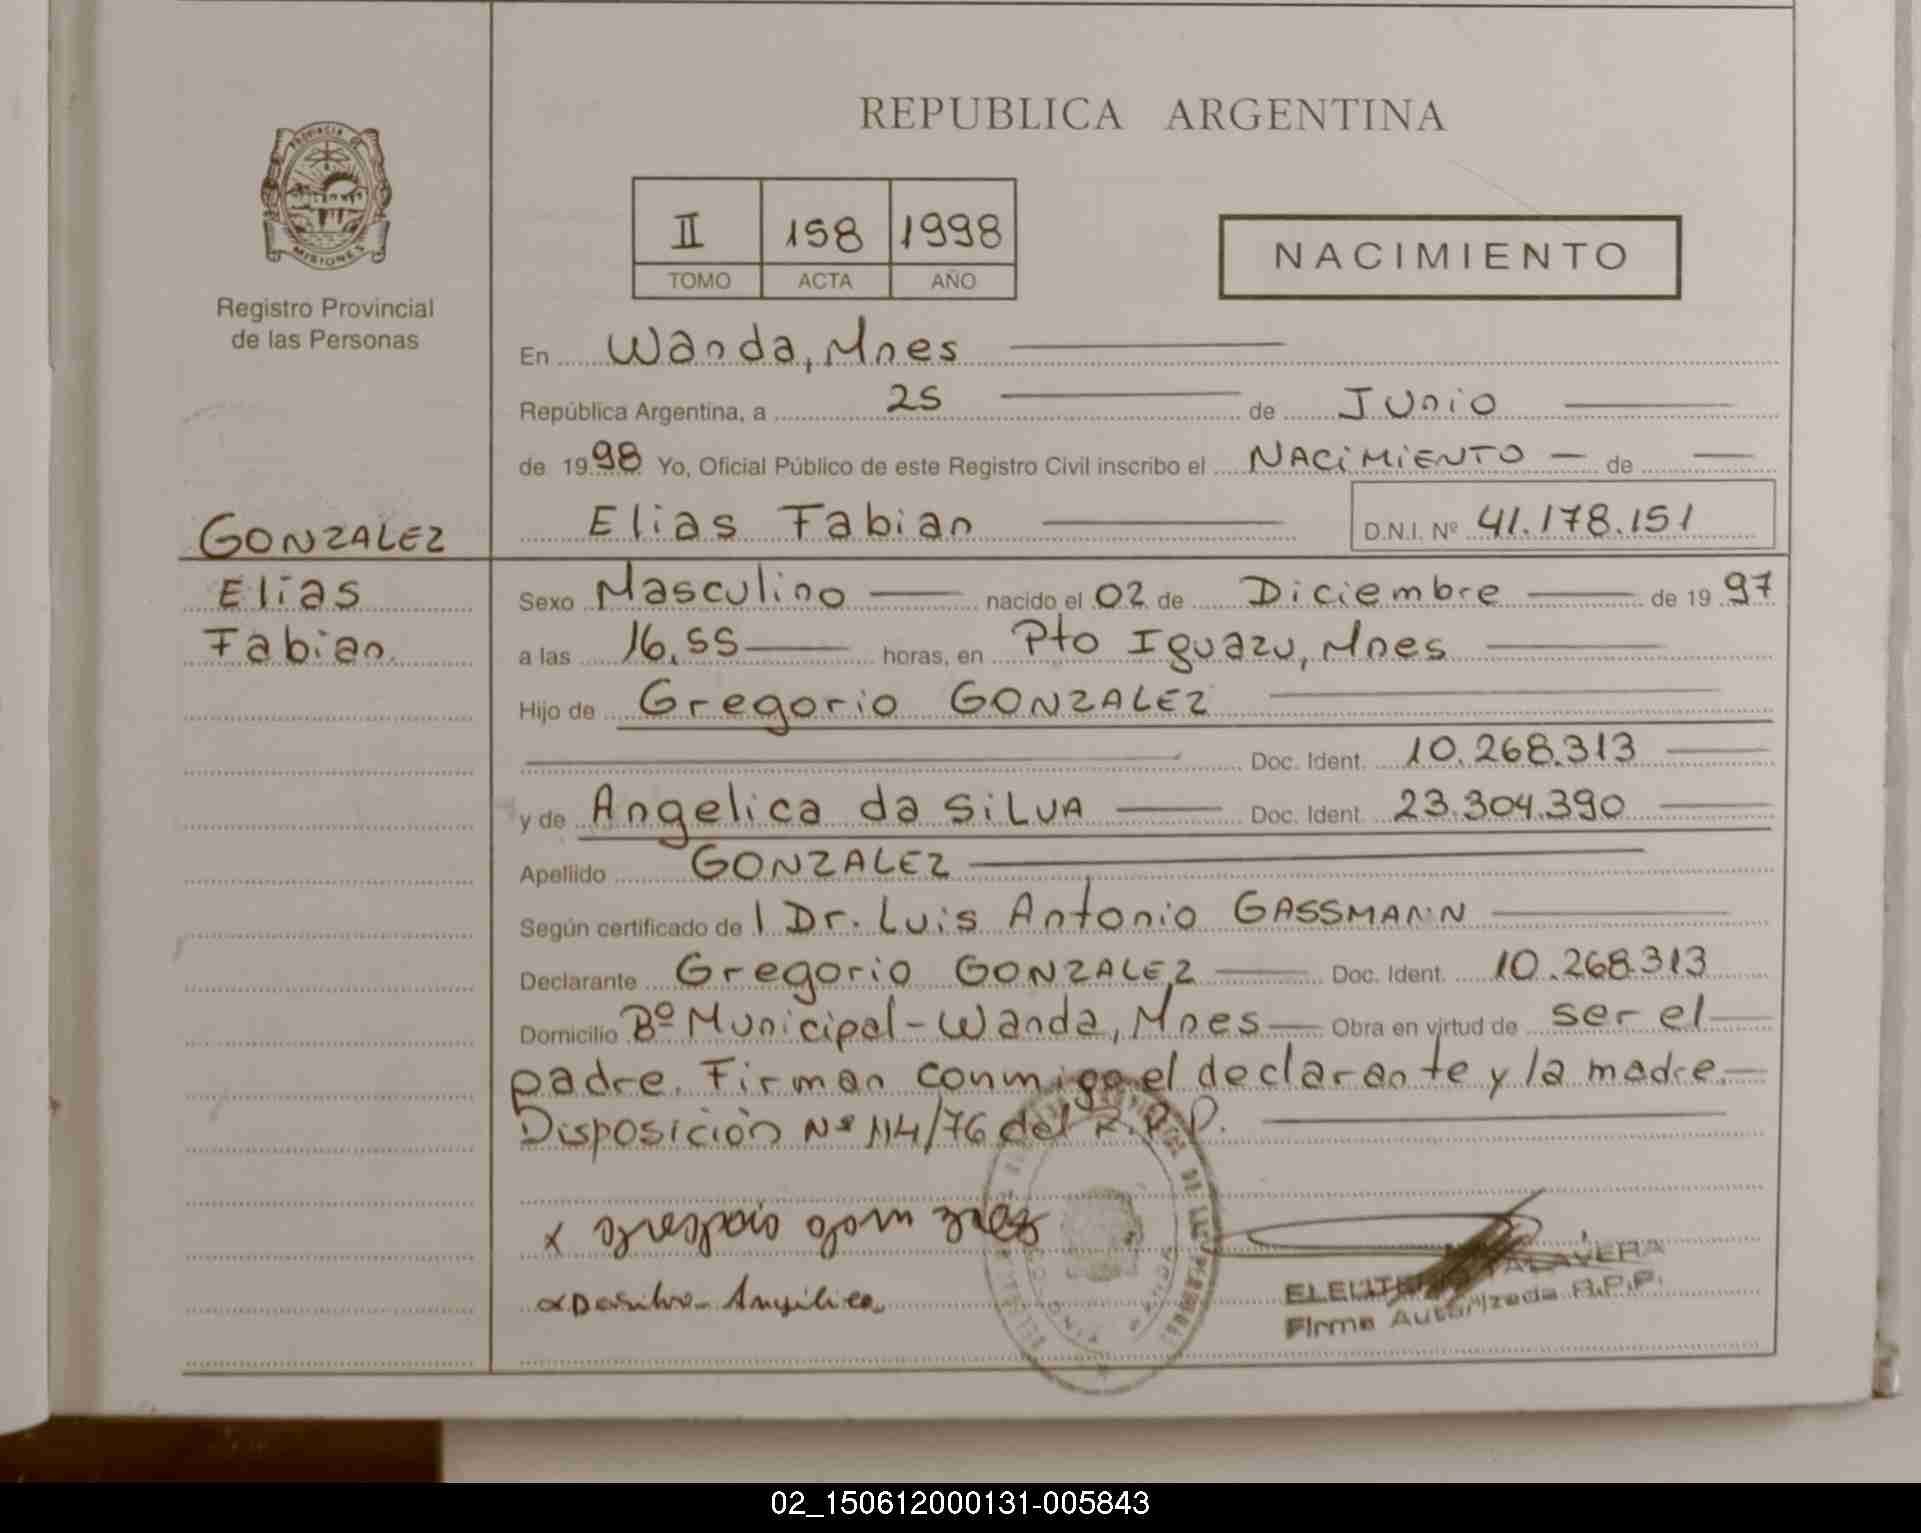 REPUBLICA ARGENTINA
PROVINCIA DE
MISIONES
Registro Provincial
de las Personas
II 158 1998
TOMO ACTA AÑO
NACIMIENTO
En Wanda, Mnes
República Argentina, a 25 de Junio
de 1998 Yo, Oficial Público de este Registro Civil inscribo el NACIMIENTO de
Elias Fabian D.N.I. Nº 41.178.151
GONZALEZ
Elias
Fabian.
Sexo Masculino nacido el 02 de Diciembre de 1997
a las 16,55 horas, en Pto Iguazu, Mnes
Hijo de Gregorio GONZALEZ
Doc. Ident. 10.268.313
y de Angelica da SiLVA Doc. Ident. 23.304.390
Apellido GONZALEZ
Según certificado de l Dr. Luis Antonio GASSMANN
Declarante Gregorio GONZALEZ Doc. Ident. 10.268.313
Domicilio Bº Municipal - Wanda, Mnes Obra en virtud de ser el
padre. Firman conmigo el declarante y la madre.
Disposición Nº 114/76 del R.P.P.
x
x Dasilva Angelica
ELEUTERIO TALAVERA
Firma Autorizada R.P.P.
02_150612000131-005843